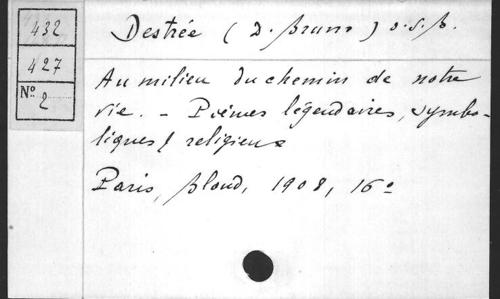 432
427
Nº 2
Destrée (D. Bruno) o.s.b.
Au milieu du chemin de notre
vie. - Poèmes légendaires, symbo-
liques, religieux
Paris, Bloud, 1908, 16º